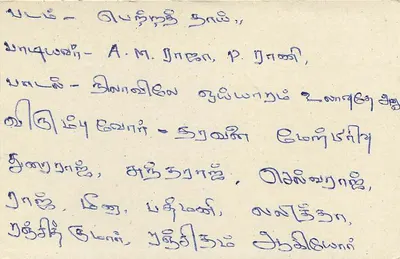 படம் - பெற்றதீ தாய்,,
பாடியவர் - A. M. ராஜா, P. ராணி,
பாடல் - நிலாவிலே ஒய்யாரம் உலாவுதே
விரும்புவோர் - சரவண் மேரி
துரைராஜ், சுந்தரராஜ், செல்வராஜ்,
ராஜ், மீனா, பத்மினி, லலித்தா,
ரஞ்சித் குமார், ரஞ்சிதம் ஆகியோர்